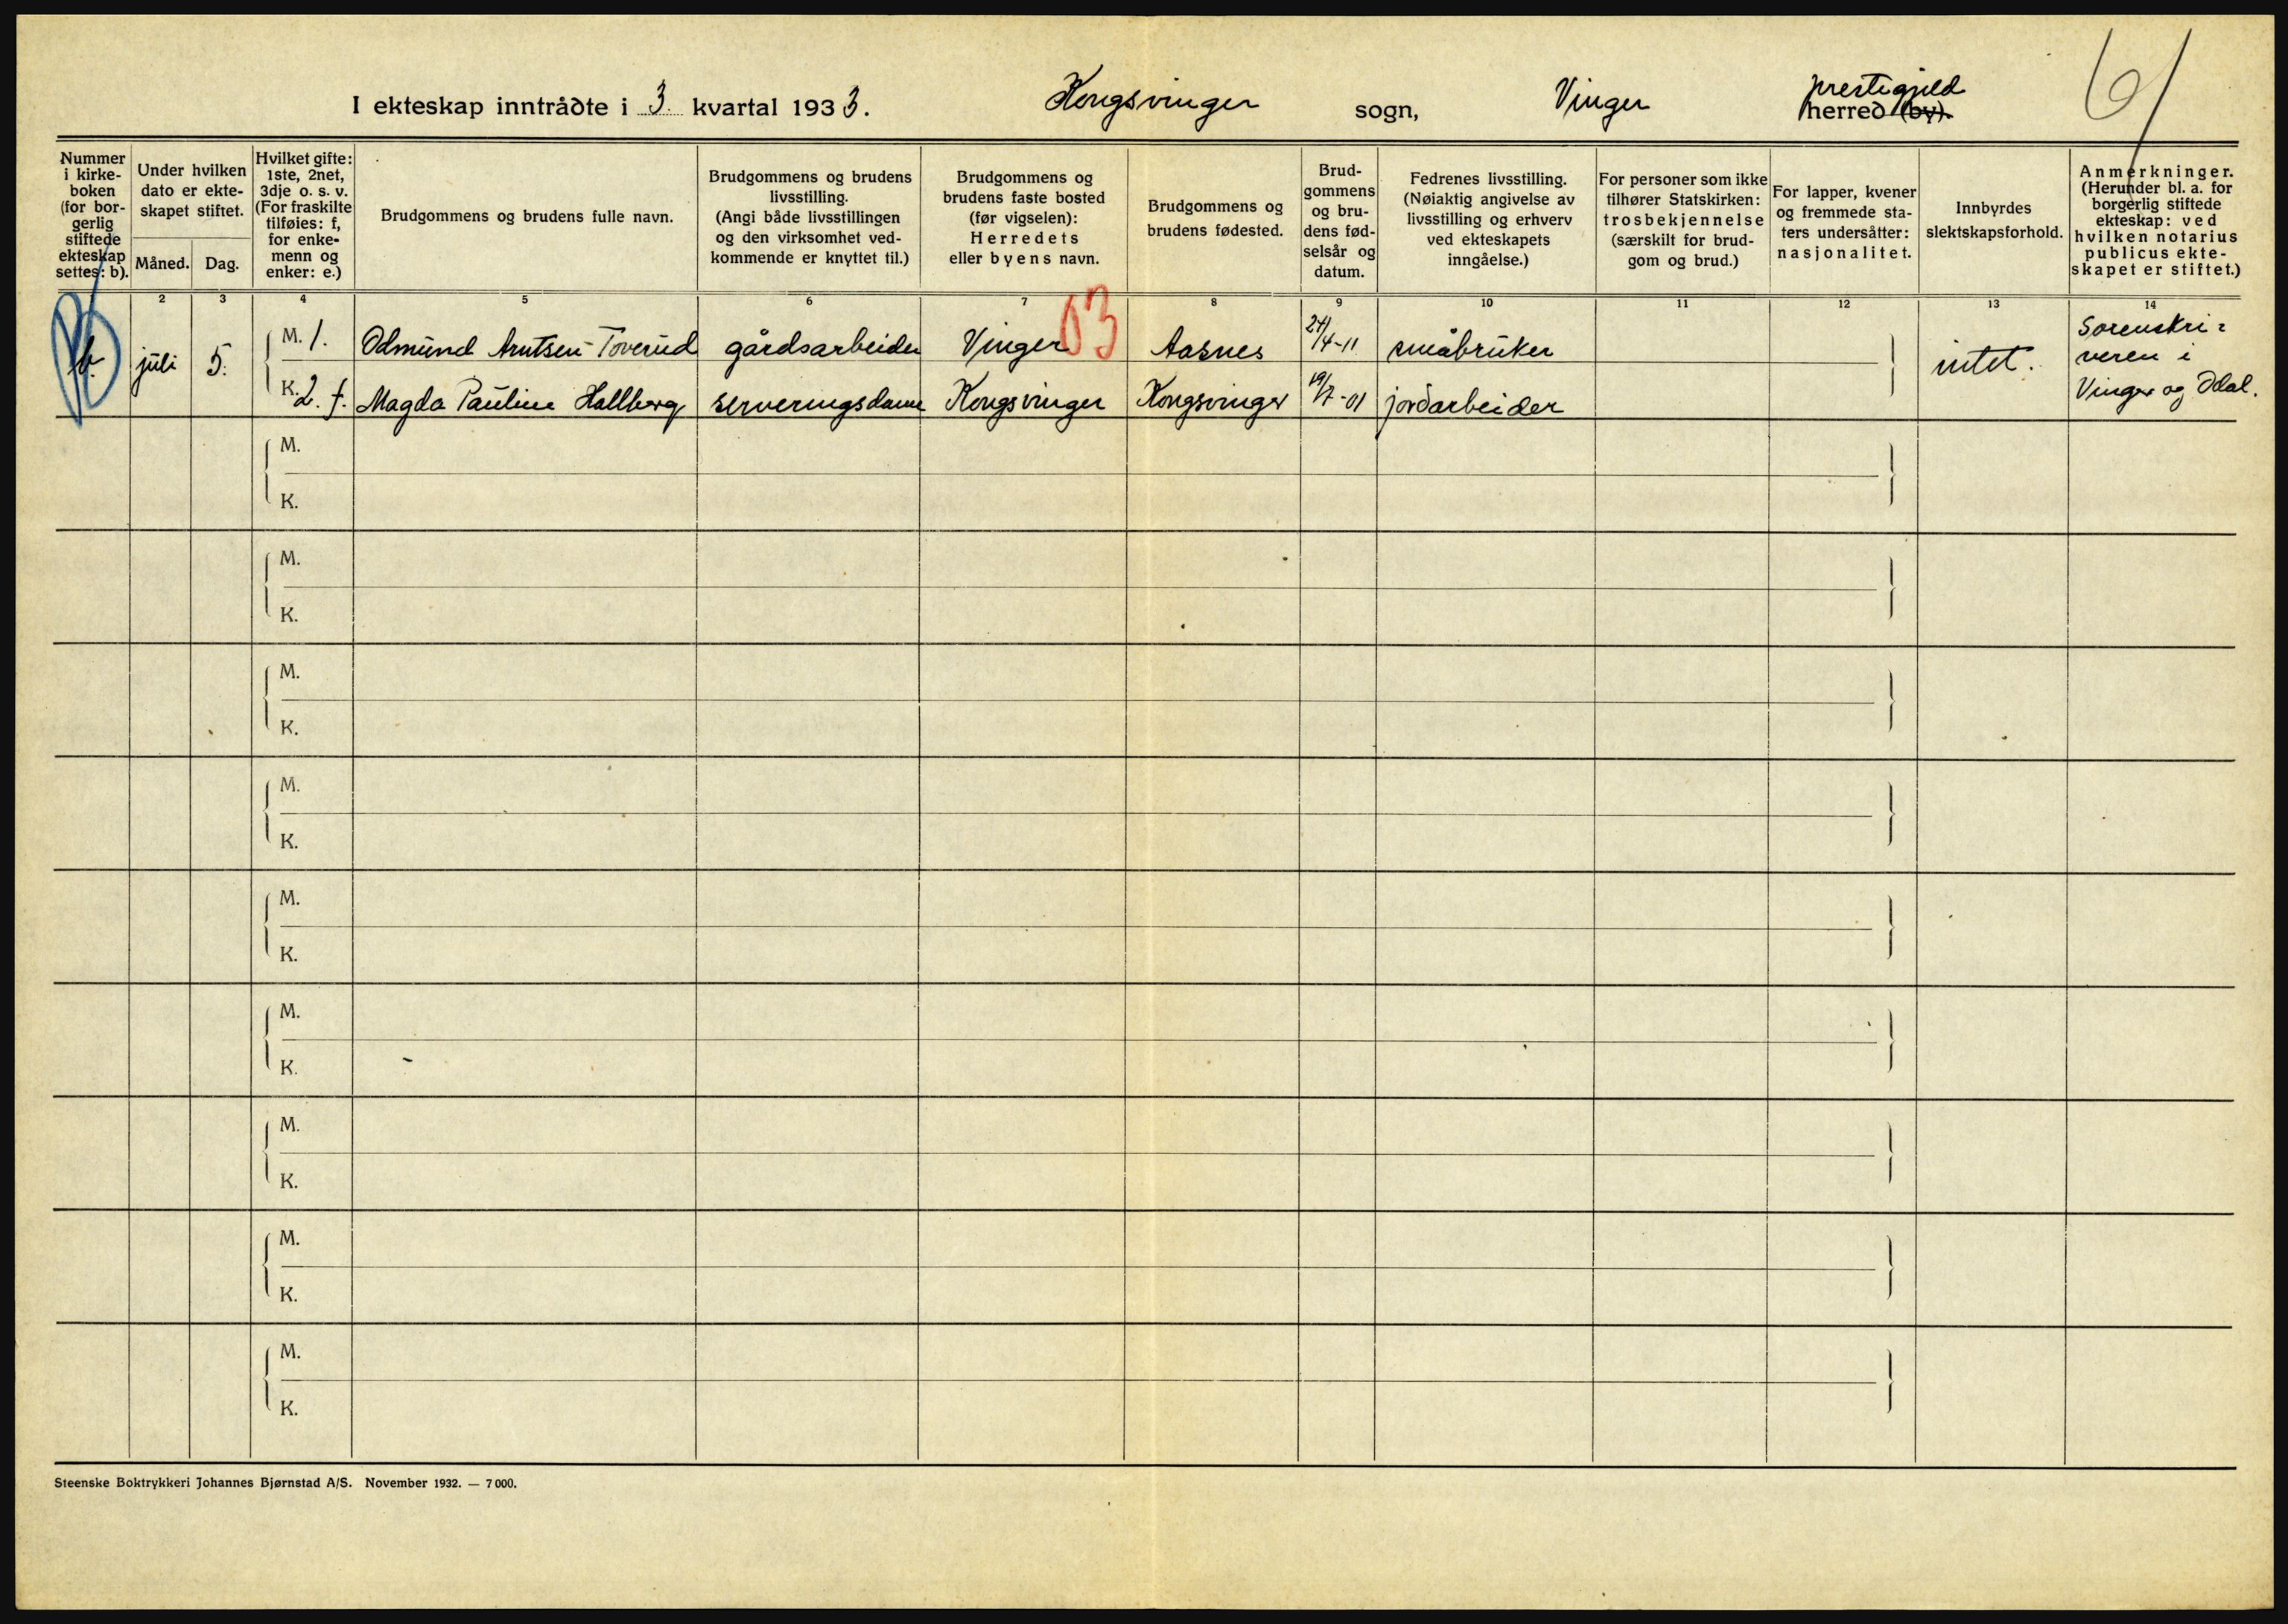 I ekteskap inntrådte i 3. kvartal 1933. Kongsvinger sogn, Vinger prestegjeld herred (by).
6/
Nummer i kirke-boken (for bor-gerlig stiftede ekteskap settes: b).
Under hvilken dato er ekte-skapet stiftet.
Måned. Dag.
Hvilket gifte: 1ste, 2net, 3dje o. s. v. (For fraskilte tilføies: f, for enke-menn og enker: e.)
Brudgommens og brudens fulle navn.
Brudgommens og brudens livsstilling. (Angi både livsstillingen og den virksomhet ved-kommende er knyttet til.)
Brudgommens og brudens faste bosted (før vigselen): Herredets eller byens navn.
Brudgommens og brudens fødested.
Brud-gommens og bru-dens fød-selsår og datum.
Fedrenes livsstilling. (Nøiaktig angivelse av livsstilling og erhverv ved ekteskapets inngåelse.)
For personer som ikke tilhører Statskirken: trosbekjennelse (særskilt for brud-gom og brud.)
For lapper, kvener og fremmede sta-ters undersåtter: nasjonalitet.
Innbyrdes slektskapsforhold.
Anmerkninger. (Herunder bl. a. for borgerlig stiftede ekteskap: ved hvilken notarius publicus ekte-skapet er stiftet.)
2 3 4 5 6 7 8 9 10 11 12 13 14
03
b. juli 5. M. 1. Odmund Arntsen Toverud gårdsarbeider Vinger Aasnes 24/4-11 småbruker
K. 2. f. Magda Pauline Hallberg serveringsdame Kongsvinger Kongsvinger 19/7-01 jordarbeider
intet.
Sorenskri=
veren i
Vinger og Odal.
M.
K.
M.
K.
M.
K.
M.
K.
M.
K.
M.
K.
M.
K.
M.
K.
M.
K.
Steenske Boktrykkeri Johannes Bjørnstad A/S. November 1932. — 7 000.